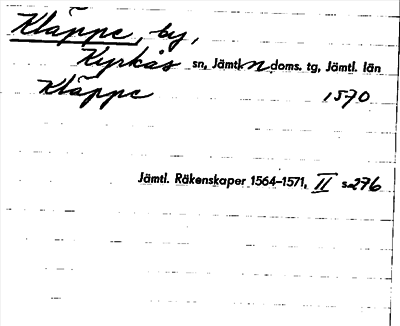 Kläppe, by,
Kyrkås sn, Jämtl. n doms. tg, Jämtl. län
Kläppe 1570
Jämtl. Räkenskaper 1564-1571, II s. 276